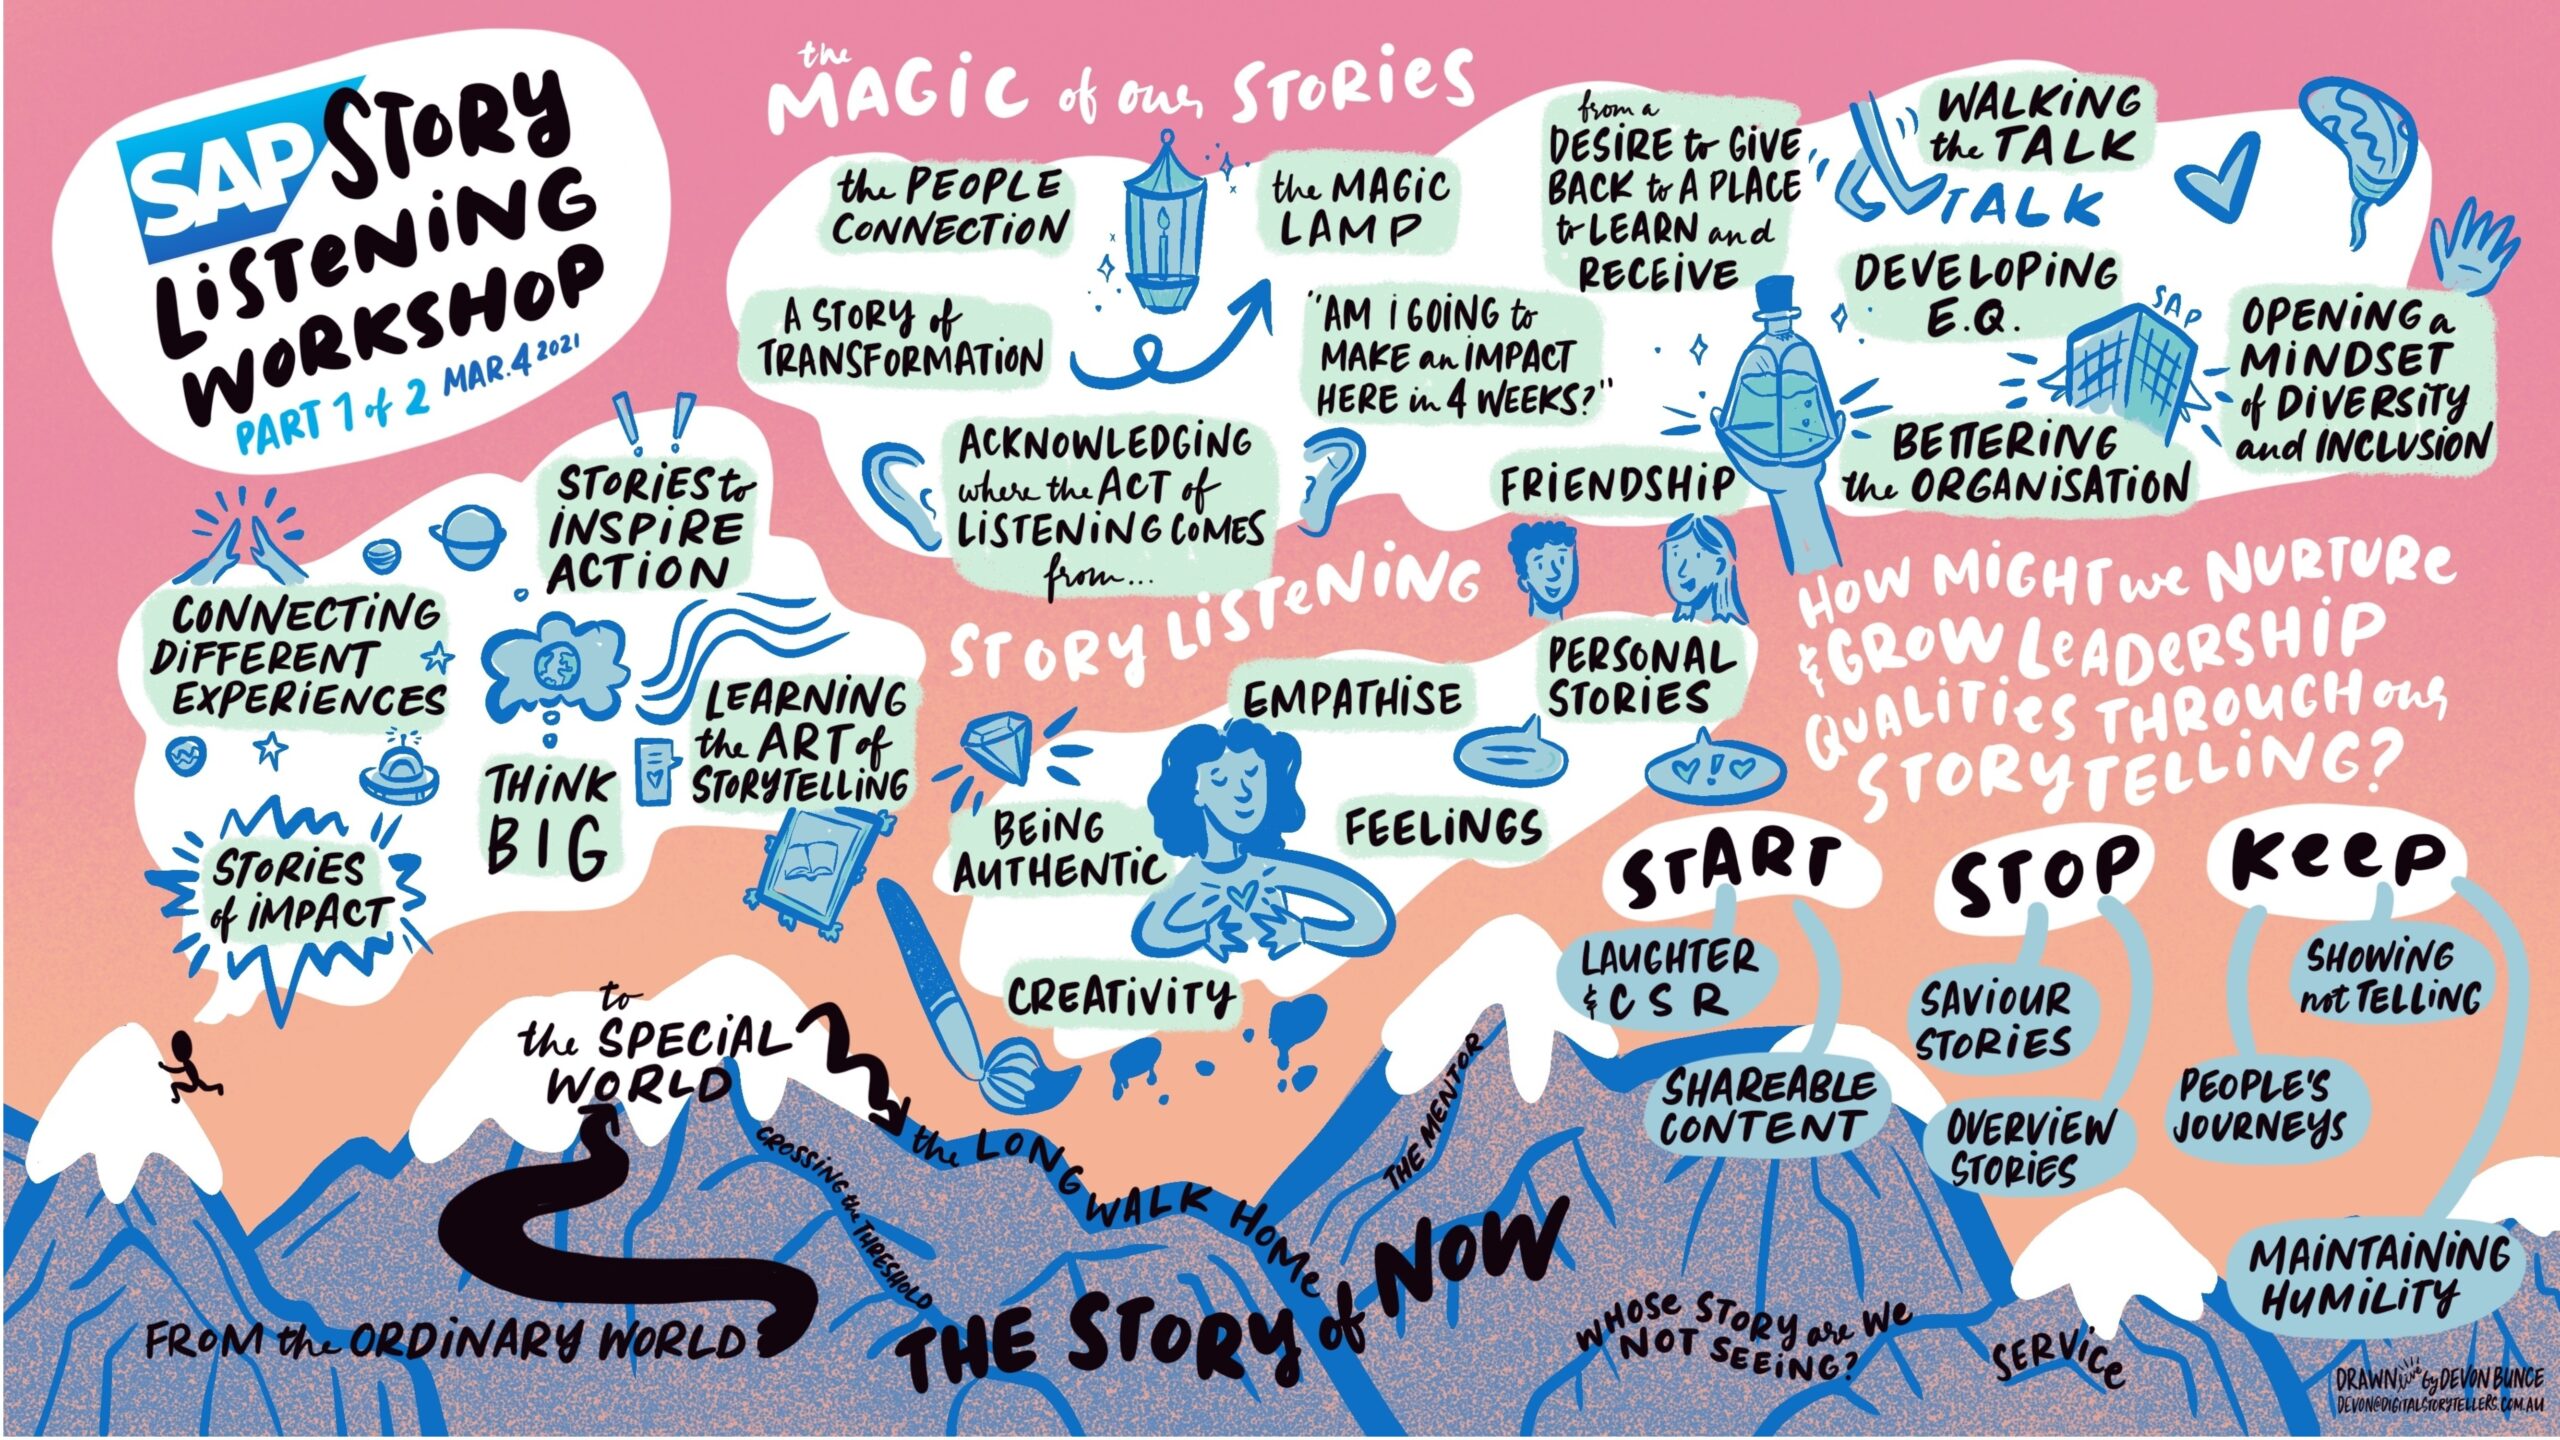 SAP STORY
LISTENING
WORKSHOP
PART 1 of 2 MAR. 4 2021
the
MAGIC of our STORIES
the PEOPLE
CONNECTION
the MAGIC
LAMP
A STORY of
TRANSFORMATION
"AM I GOING to
MAKE an IMPACT
HERE in 4 WEEKS?"
ACKNOWLEDGING
where the ACT of
LISTENING COMES
from...
from a
DESIRE to GIVE
BACK to A PLACE
to LEARN and
RECEIVE
WALKING
the TALK
TALK
DEVELOPING
E.Q.
SAP
OPENING a
MINDSET
of DIVERSITY
and INCLUSION
BETTERING
the ORGANISATION
FRIENDSHIP
STORIES to
INSPIRE
ACTION
CONNECTING
DIFFERENT
EXPERIENCES
THINK
BIG
LEARNING
the ART of
STORYTELLING
STORIES
of IMPACT
STORY LISTENING
EMPATHISE
PERSONAL
STORIES
BEING
AUTHENTIC
FEELINGS
CREATIVITY
HOW MIGHT we NURTURE
& GROW LEADERSHIP
QUALITIES THROUGH our
STORYTELLING?
START
LAUGHTER
& CSR
SHAREABLE
CONTENT
STOP
SAVIOUR
STORIES
OVERVIEW
STORIES
KEEP
SHOWING
not TELLING
PEOPLE'S
JOURNEYS
MAINTAINING
HUMILITY
FROM the ORDINARY WORLD
to
the SPECIAL
WORLD
CROSSING the THRESHOLD
the LONG WALK HOME
THE MENTOR
THE STORY of NOW
WHOSE STORY are WE
NOT SEEING?
SERVICE
DRAWN live by DEVON BUNCE
DEVON@DIGITALSTORYTELLERS.COM.AU